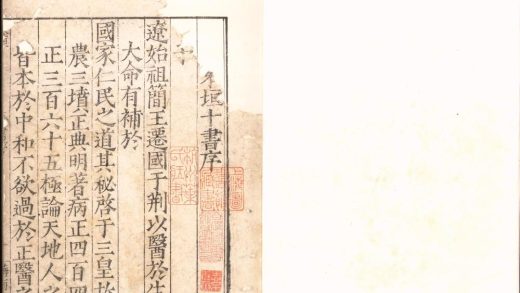 垣十書序
遼始祖簡王遷國于荆以醫於生
大命有補於
國家仁民之道其秘啓于三皇故
農三墳正典明著病正四百四
正三百六十五極論天地人
旨本於中和不欲過於正醫